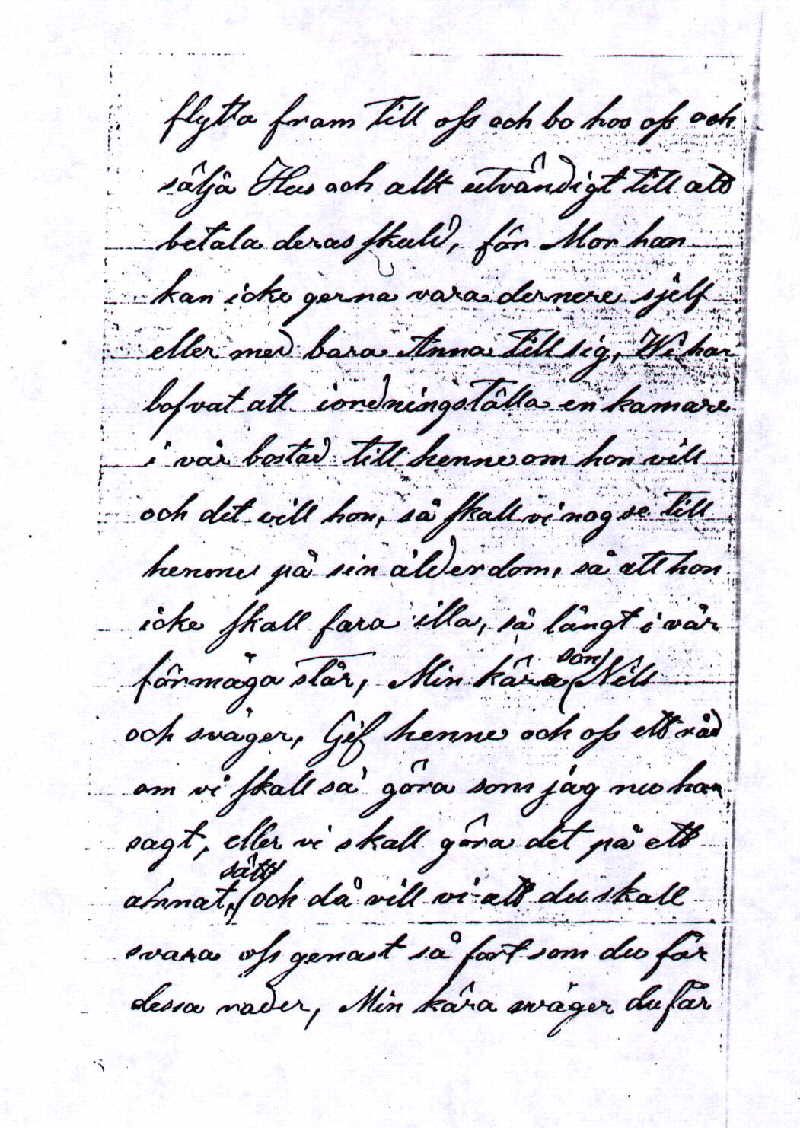 flytta fram till oss och bo hos oss och
sälja Hus och allt utvändigt till att
betala deras skuld, för Mor hon
kan icke gerna vara dernere sjelf
eller med bara Anna till sig, Wi har
lofvat att iordningställa en kamare
i vår bostad till henne om hon vill
och det vill hon, så skall vi nog se till
henne på sin ålderdom, så att hon
icke skall fara illa, så långt i vår
förmåga står, Min kära son Nils
och svåger, Gif henne och oss ett råd
om vi skall så göra som jag nu har
sagt, eller vi skall göra det på ett
annat sätt, och då vill vi att du skall
svara oss genast så fort som du får
dessa rader, Min kära svåger du får